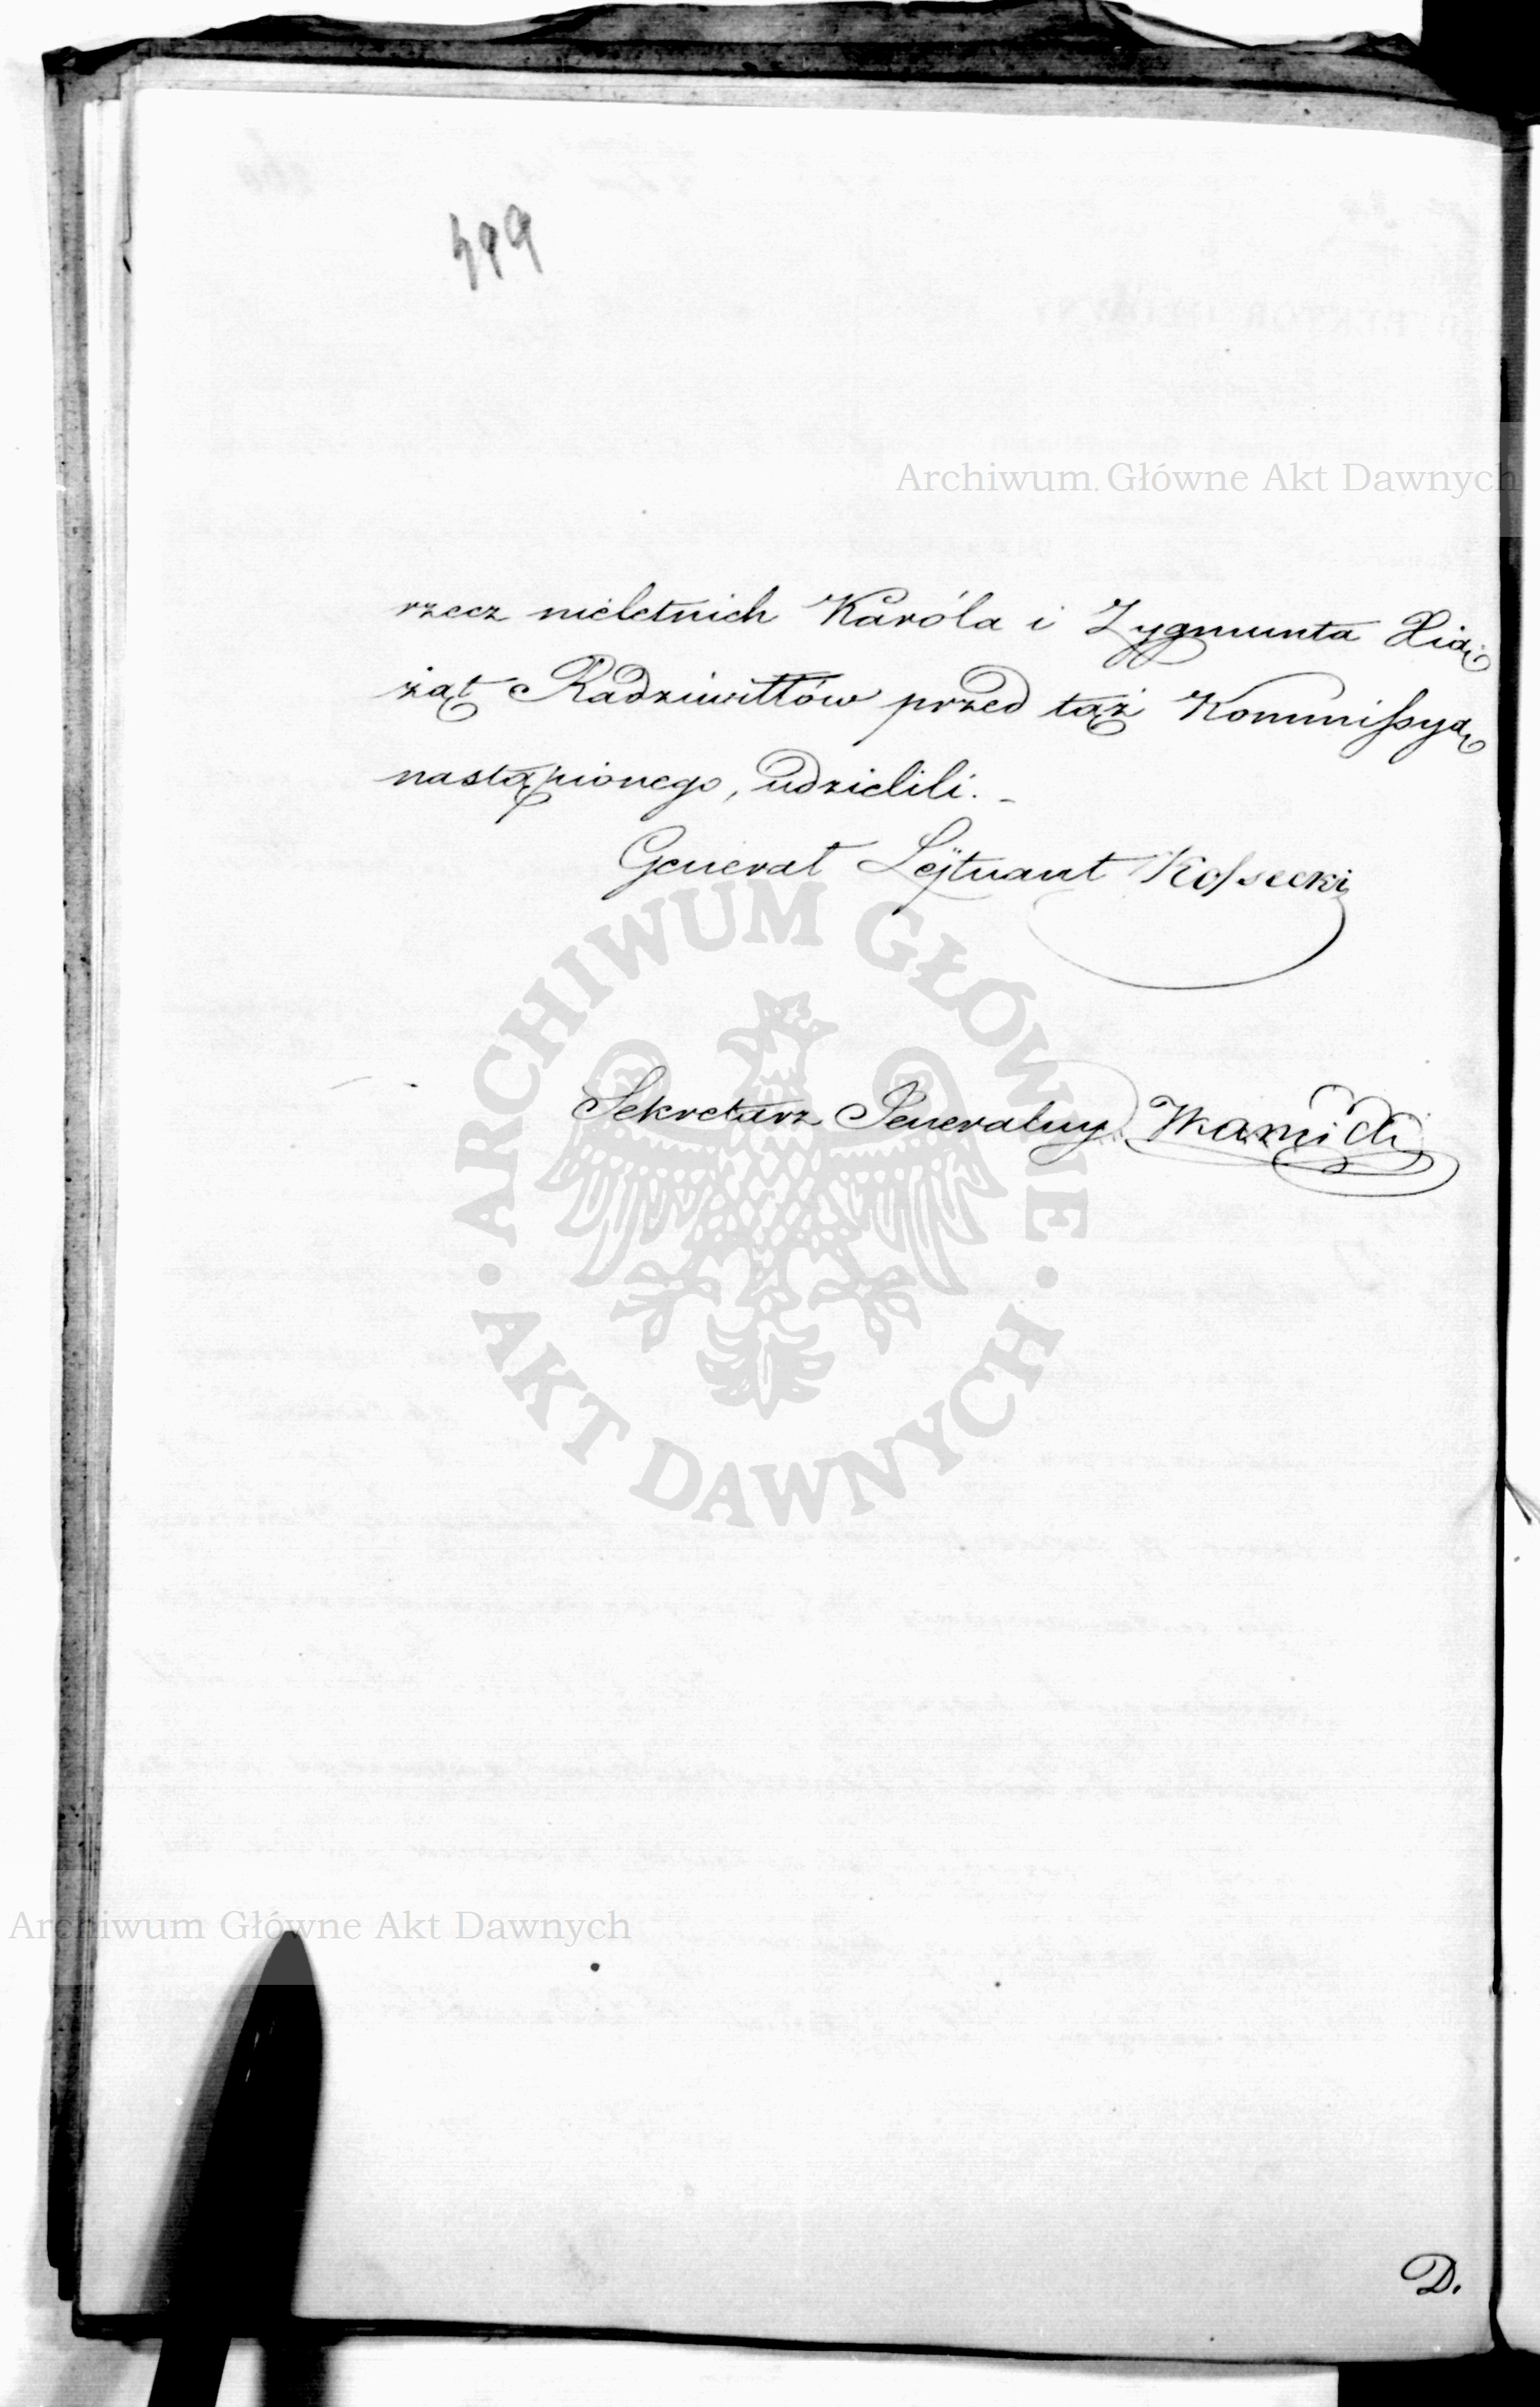 499
Archiwum Główne Akt Dawnych
rzecz nieletnich Karóla i Zygmunta Xią:
żąt Radziwiłłów przed tąż Kommissyą
nastąpionego, udzielili. _
Generał Lejtnant Kossecki
ARCHIWUM GŁÓWNE AKT DAWNYCH
Sekretarz Generalny
Archiwum Główne Akt Dawnych
D.